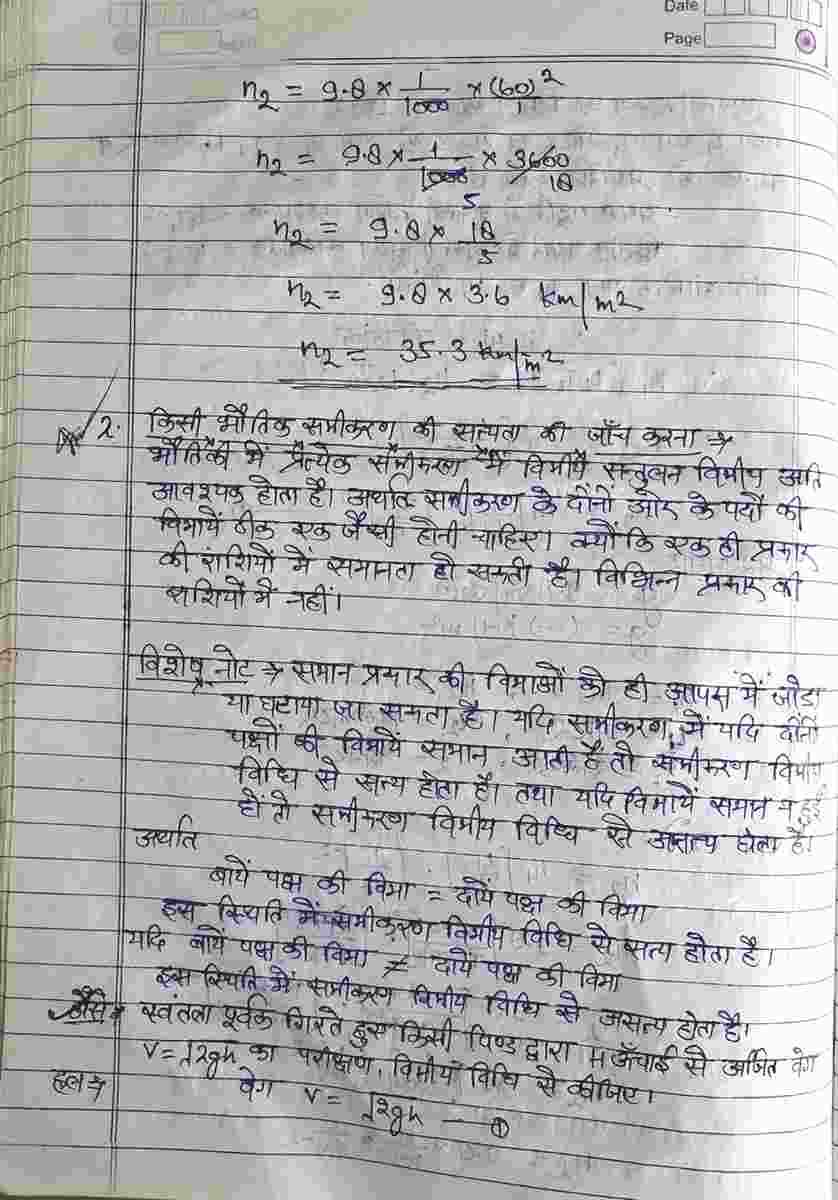 Date
Page
n₂ = 9.8 × 1/1000 × (60)²/1
n₂ = 9.8 × 1/1000 × 3600
5 18
n₂ = 9.8 × 18/5
n₂ = 9.8 × 3.6 km/m²
n₂ = 35.3 km/m²
2. किसी भौतिक समीकरण की सत्यता की जाँच करना →
भौतिकी में प्रत्येक समीकरण में विमीय सन्तुलन विमीय अति
आवश्यक होता है। अर्थात समीकरण के दोनों ओर के पदों की
विमायें ठीक एक जैसी होनी चाहिए। क्योंकि एक ही प्रकार
की राशियों में समानता हो सकती है। विभिन्न प्रकार की
राशियों में नहीं।
विशेष नोट → समान प्रकार की विमाओं को ही आपस में जोडा
या घटाया जा सकता है। यदि समीकरण में यदि दोनों
पक्षों की विमायें समान आती है तो समीकरण विमीय
विधि से सत्य होता है। तथा यदि विमायें समान न हुई
हों तो समीकरण विमीय विधि से असत्य होता है।
अर्थात
बायें पक्ष की विमा = दायें पक्ष की विमा
इस स्थिति में समीकरण विमीय विधि से सत्य होता है।
यदि बायें पक्ष की विमा ≠ दायें पक्ष की विमा
इस स्थिति में समीकरण विमीय विधि से असत्य होता है।
जैसे → स्वंतला पूर्वक गिरते हुए किसी पिण्ड द्वारा H ऊँचाई से अर्जित वेग
v = √2gh का परीक्षण विमीय विधि से कीजिए।
हल → वेग v = √2gh — ①